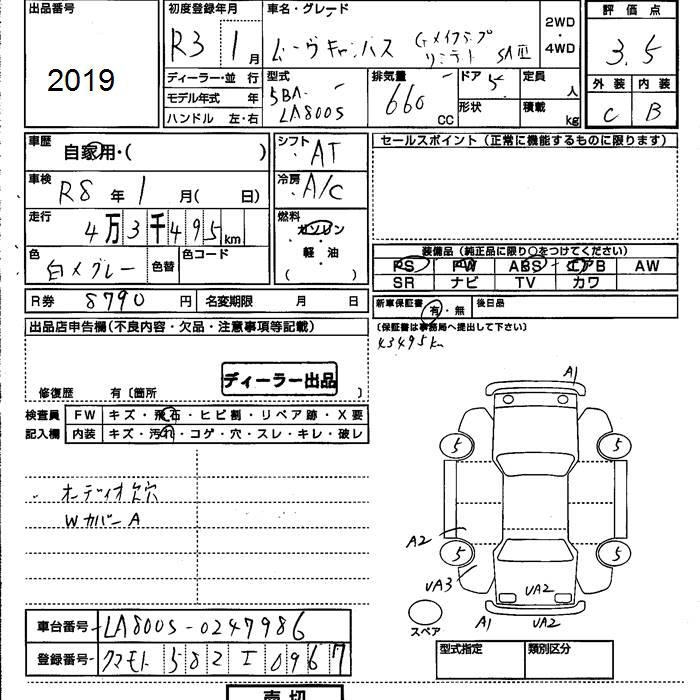 出品番号
2019
初度登録年月
R3 1月
車名・グレード
ムーヴキャンバス Gメイクアップ
リミテド SAⅢ
2WD
・
4WD
評価点
3.5
外装 内装
C B
ディーラー・並行
モデル年式 年
ハンドル 左・右
型式
5BA-
LA800S
排気量
660
CC
ドア
5
形状
定員
人
積載
kg
車歴
自家用・( )
シフト
AT
セールスポイント (正常に機能するものに限ります)
車検
R8年1月( 日)
冷房
A/C
走行
4万3千495km
燃料
ガソリン
・
軽油
( )
色
白×グレー
色替
色コード
装備品(純正品に限り○をつけてください)
PS PW ABS エアB AW
SR ナビ TV カワ
R券 8790円
名変期限 月 日
新車保証書 有・無
後日品
(保証書は事務局へ提出して下さい)
43495km
出品店申告欄(不良内容・欠品・注意事項等記載)
ディーラー出品
修復歴 有〔箇所 〕
検査員
記入欄
FW キズ・飛石・ヒビ割・リペア跡・X要
内装 キズ・汚れ・コゲ・穴・スレ・キレ・破レ
オーディオ欠穴
Wカバー A
A1
5
5
A2
5
5
UA3
UA2
A1
UA2
スペア
車台番号
LA800S-0247986
登録番号
クマモト 582 エ 0967
型式指定
類別区分
売切